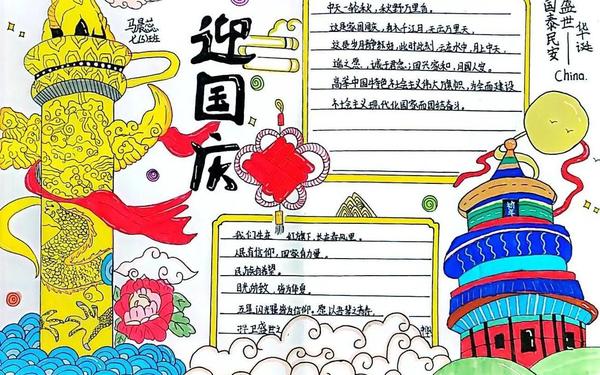 马景蕊
七(5)班
迎国庆
盛世华诞
国泰民安
China.
中天一轮满,秋野万里香,
这是家国同庆,有水千江月,千云万里天,
这是岁月静好,此时此刻,云在水中,月上中天,
端之思,诚于君念,国兴家和,月圆人安。
高举中国特色社会主义伟大旗帜,为全面建设
社会主义现代化国家而团结奋斗。
我们生在红旗下,长在春风里。
人民有信仰,国家有力量,
民族有希望。
目光所致,皆为华夏。
五星闪耀皆为信仰。愿以吾辈之青春
守卫盛世之